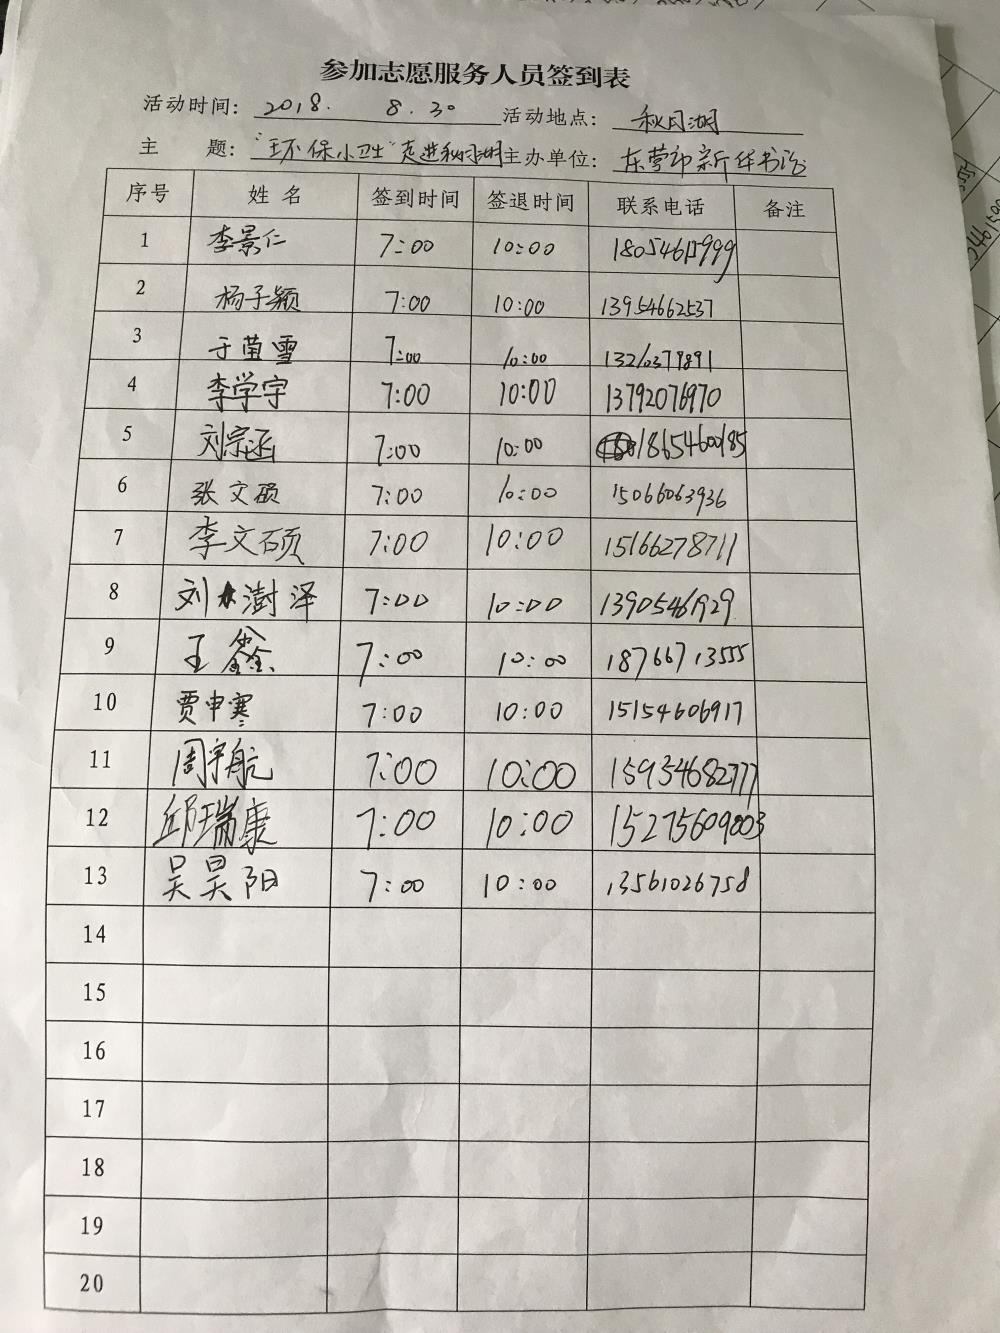 参加志愿服务人员签到表
活动时间: 2018. 8.30 活动地点: 秋月湖
主 题: "环保小卫士"走进秋月湖 主办单位: 东营市新华书店
序号 姓名 签到时间 签退时间 联系电话 备注
1 李景仁 7:00 10:00
2 杨子颖 7:00 10:00 13954662537
3 于菌雪 7:00 10:00 13210379891
4 李学宇 7:00 10:00 13792076970
5 刘宗函 7:00 10:00 18654600185
6 张文硕 7:00 10:00 15066063936
7 李文硕 7:00 10:00 15166278711
8 刘澍泽 7:00 10:00 13905461929
9 王鑫 7:00 10:00 18766713555
10 贾申寒 7:00 10:00 15154606917
11 周宇航 7:00 10:00 15934682777
12 邱瑞康 7:00 10:00 15275609003
13 吴昊阳 7:00 10:00 13561026758
14
15
16
17
18
19
20